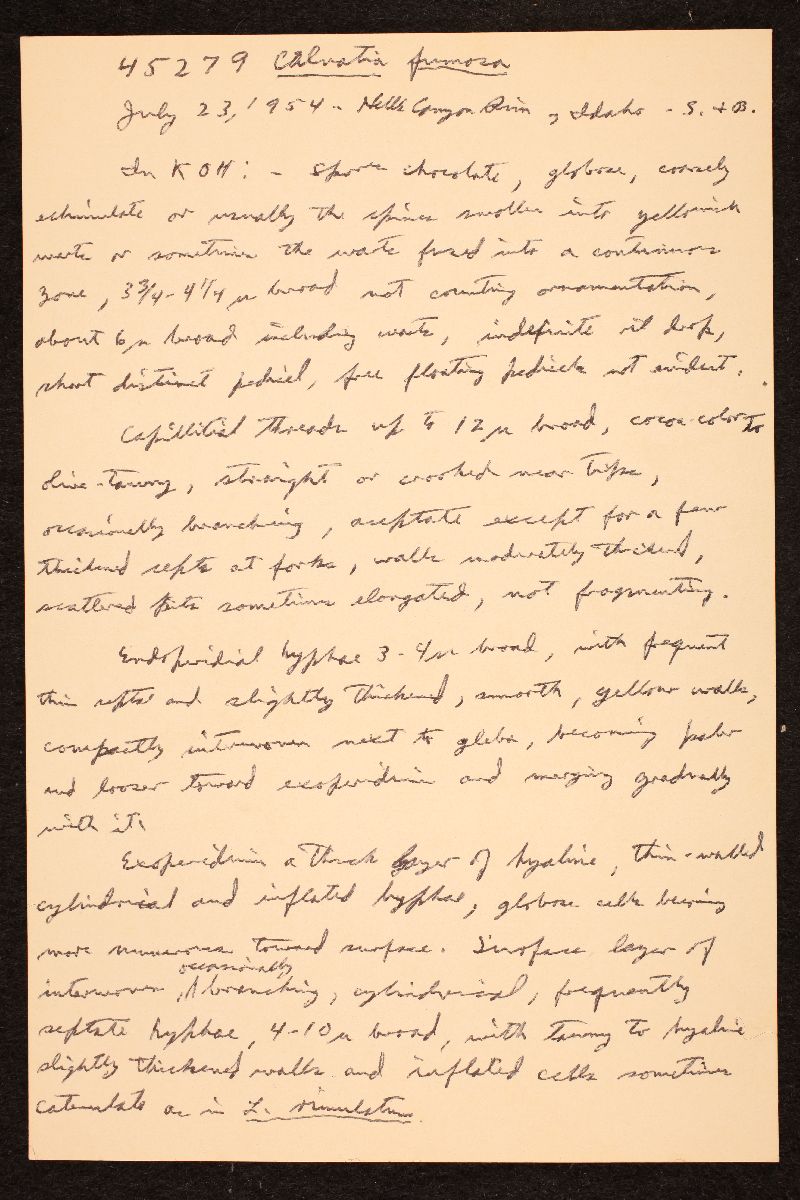 45279 Calvatia fumosa
July 23, 1954 - Hells Canyon Rim, Idaho - S. + B.
In KOH: - Spores chocolate, globose, coarsely
echinulate or usually the spines swollen into yellowish
warts or sometimes the warts fused into a continuous
zone, 3 3/4 - 4 1/4 µ broad not counting ornamentation,
about 6µ broad including warts, indefinite oil drop,
short distinct pedicel, free floating pedicels not evident.
Capillitial threads up to 12µ broad, cocoa-color to
olive-tawny, straight or crooked near tips,
occasionally branching, aseptate except for a few
thickened septa at forks, walls moderately thickened,
scattered pits sometimes elongated, not fragmenting.
Endoperidial hyphae 3-4µ broad, with frequent
thin septa and slightly thickened, smooth, yellow walls,
compactly interwoven next to gleba, becoming paler
and looser toward exoperidium and merging gradually
with it.
Exoperidium a thick layer of hyaline, thin-walled
cylindrical and inflated hyphae, globose cells becoming
more numerous toward surface. Surface layer of
interwoven, occasionally branching, cylindrical, frequently
septate hyphae, 4-10µ broad, with tawny to hyaline
slightly thickened walls and inflated cells sometimes
catenulate as in L.